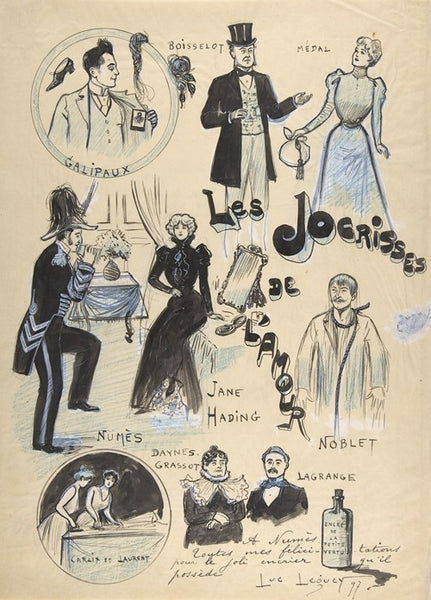 BOISSELOT
MÉDAL
GALIPAUX
LES
JOCRISSES
DE
L'AMOUR
JANE
HADING
NUMÈS
NOBLET
DAYNES.
GRASSOT
LAGRANGE
CARLIX ET LAURENT
ENCRE
DE LA
PETITE
VERTU
A Numès
toutes mes félicitations
pour le joli encrier qu'il
possède
Luc Leguey 97.